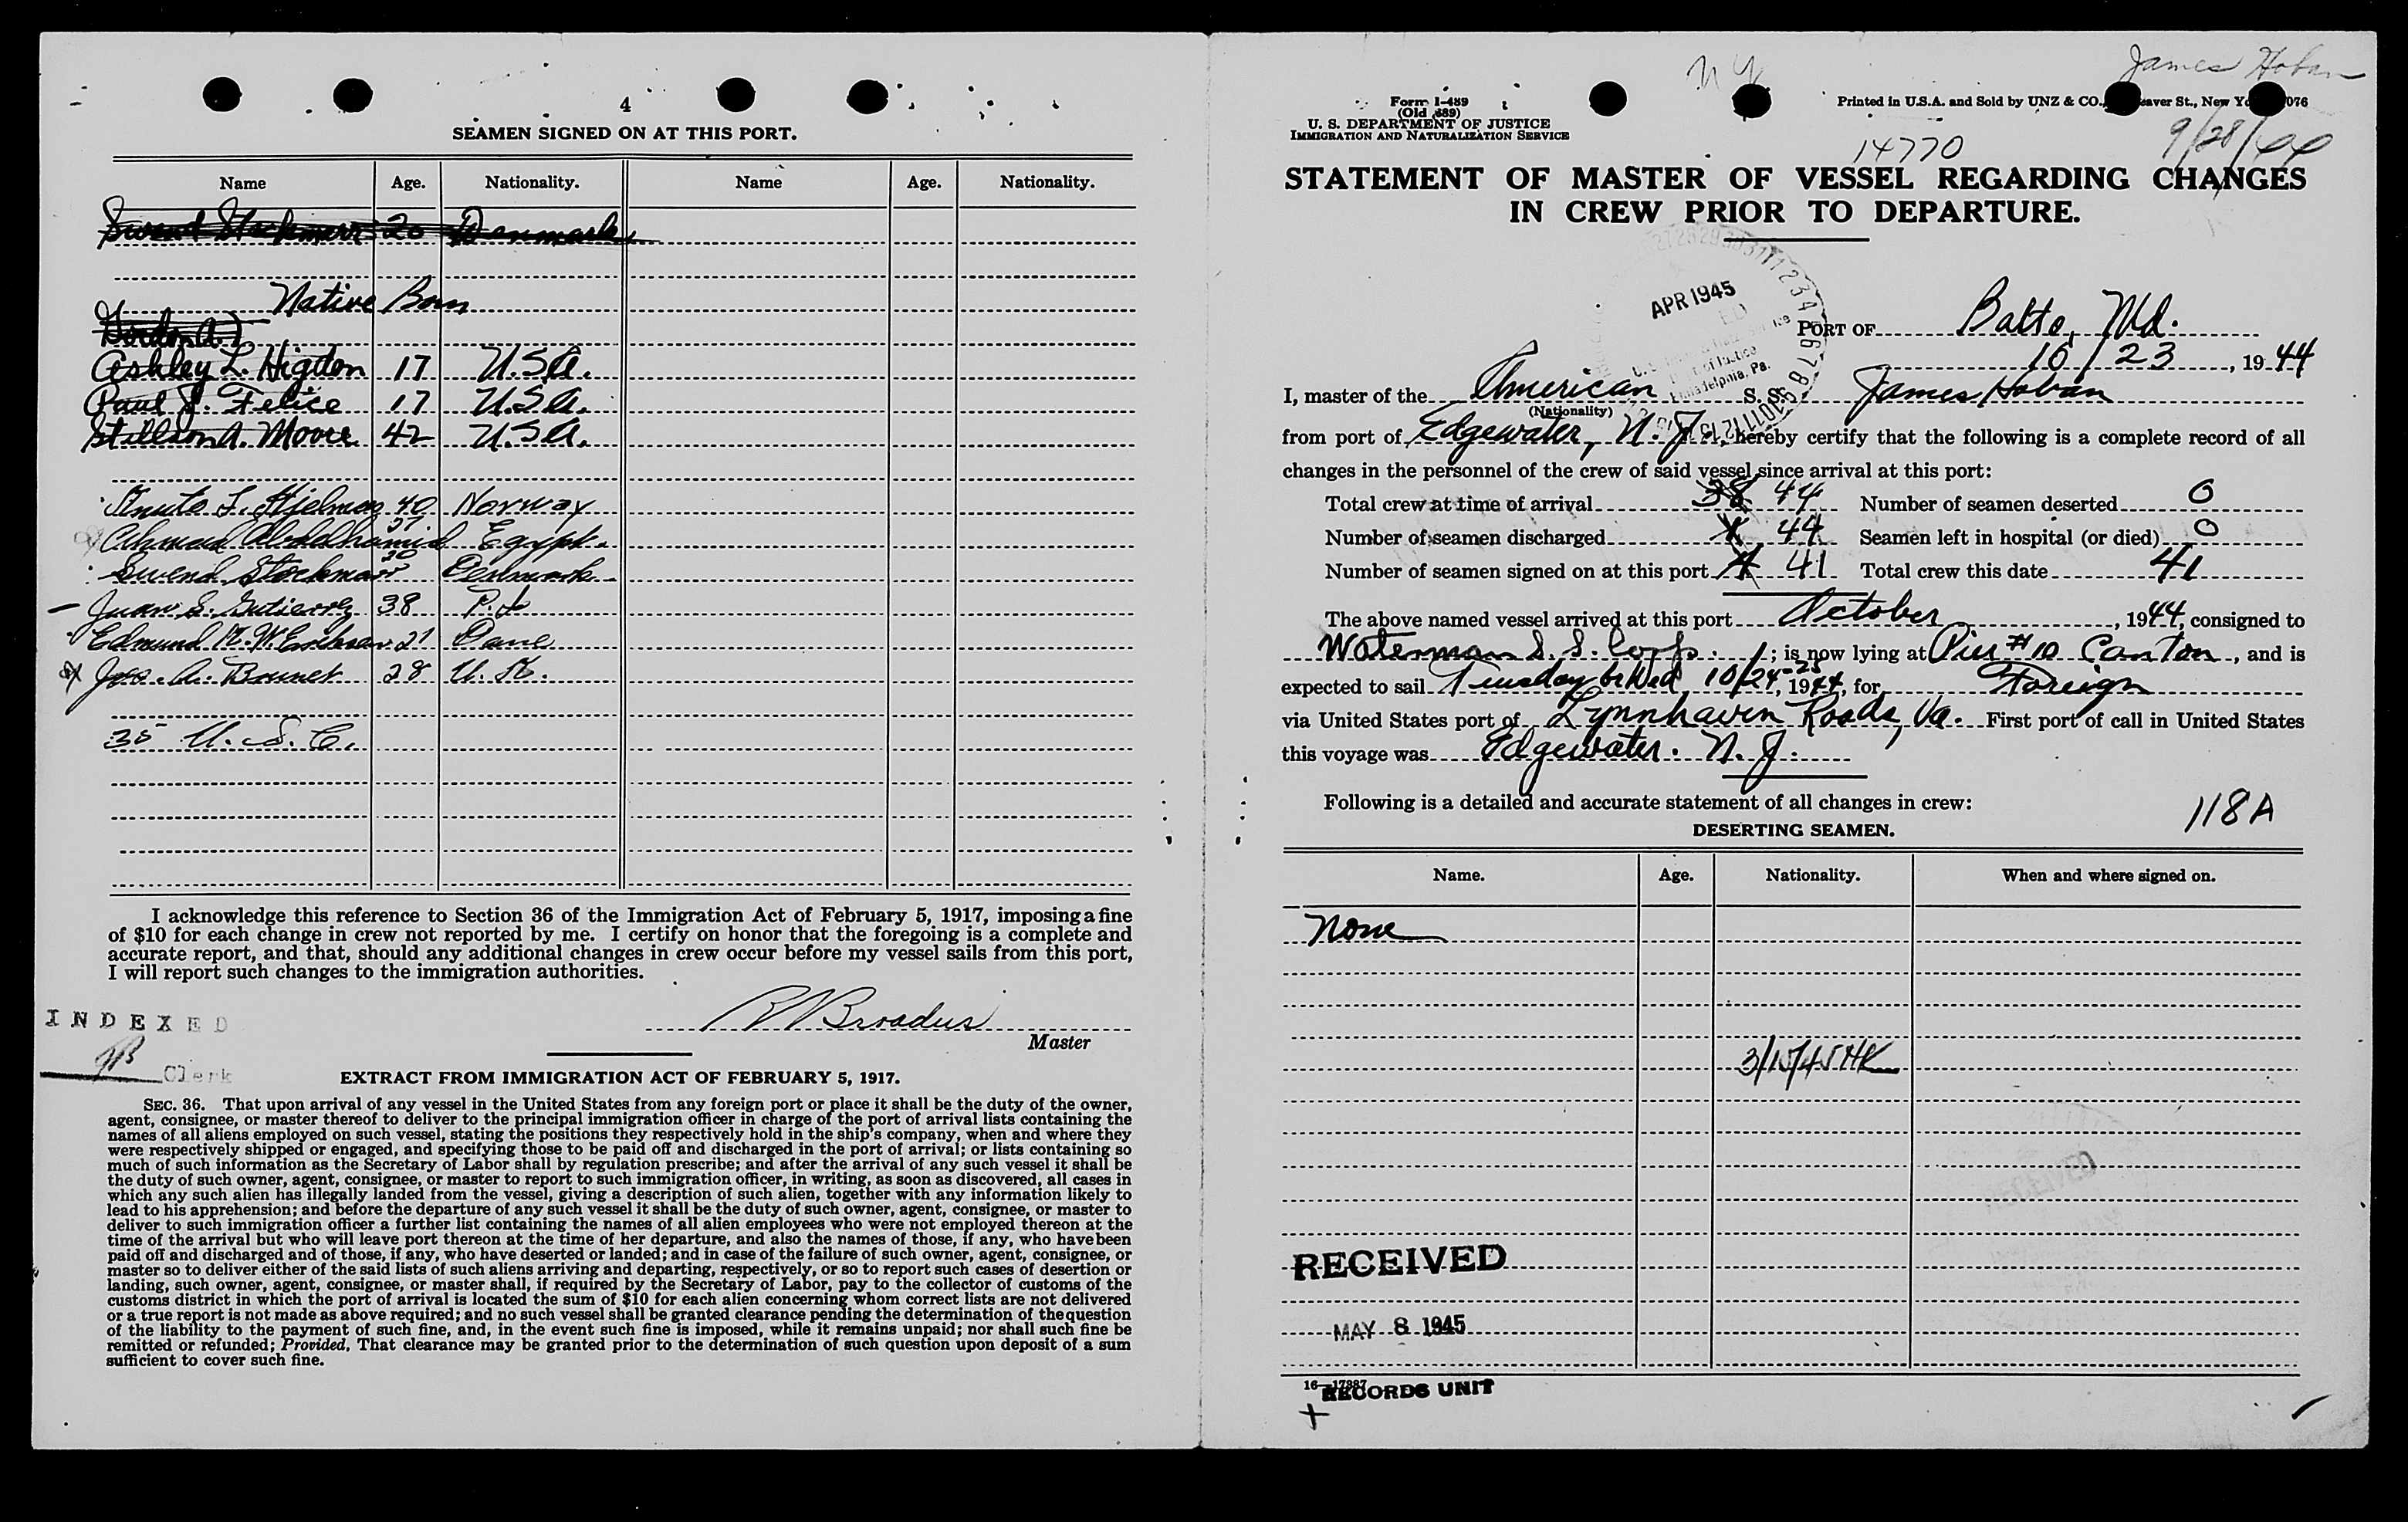 4
SEAMEN SIGNED ON AT THIS PORT.
Name Age. Nationality. Name Age. Nationality.
Swend Stockmarr 20 Denmark
Native Born
Gordon A.
Ashley L. Higdon 17 U.S.A.
Paul J. Felice 17 U.S.A.
Stillson A. Moore 42 U.S.A.
Knute 40 Norway
Ahmad Abdalhamid 27 Egypt.
Swend Stockmarr 20 Denmark
Juan S. Gutierrez 38 P.I.
Edmund 21 Dane
Jos. A. 28 U.K.
35 U.S.C.
I acknowledge this reference to Section 36 of the Immigration Act of February 5, 1917, imposing a fine
of $10 for each change in crew not reported by me. I certify on honor that the foregoing is a complete and
accurate report, and that, should any additional changes in crew occur before my vessel sails from this port,
I will report such changes to the immigration authorities.
INDEXED
Broadus
Master
Clerk
EXTRACT FROM IMMIGRATION ACT OF FEBRUARY 5, 1917.
SEC. 36. That upon arrival of any vessel in the United States from any foreign port or place it shall be the duty of the owner,
agent, consignee, or master thereof to deliver to the principal immigration officer in charge of the port of arrival lists containing the
names of all aliens employed on such vessel, stating the positions they respectively hold in the ship's company, when and where they
were respectively shipped or engaged, and specifying those to be paid off and discharged in the port of arrival; or lists containing so
much of such information as the Secretary of Labor shall by regulation prescribe; and after the arrival of any such vessel it shall be
the duty of such owner, agent, consignee, or master to report to such immigration officer, in writing, as soon as discovered, all cases in
which any such alien has illegally landed from the vessel, giving a description of such alien, together with any information likely to
lead to his apprehension; and before the departure of any such vessel it shall be the duty of such owner, agent, consignee, or master to
deliver to such immigration officer a further list containing the names of all alien employees who were not employed thereon at the
time of the arrival but who will leave port thereon at the time of her departure, and also the names of those, if any, who have been
paid off and discharged and of those, if any, who have deserted or landed; and in case of the failure of such owner, agent, consignee, or
master so to deliver either of the said lists of such aliens arriving and departing, respectively, or so to report such cases of desertion or
landing, such owner, agent, consignee, or master shall, if required by the Secretary of Labor, pay to the collector of customs of the
customs district in which the port of arrival is located the sum of $10 for each alien concerning whom correct lists are not delivered
or a true report is not made as above required; and no such vessel shall be granted clearance pending the determination of the question
of the liability to the payment of such fine, and, in the event such fine is imposed, while it remains unpaid; nor shall such fine be
remitted or refunded; Provided, That clearance may be granted prior to the determination of such question upon deposit of a sum
sufficient to cover such fine.
NY
James Hoban
Form I-489
(Old 689)
U. S. DEPARTMENT OF JUSTICE
IMMIGRATION AND NATURALIZATION SERVICE
Printed in U.S.A. and Sold by UNZ & CO., St., New
14770
9/28/44
STATEMENT OF MASTER OF VESSEL REGARDING CHANGES
IN CREW PRIOR TO DEPARTURE.
APR 1945
PORT OF Balto, Md.
10/23, 1944
I, master of the American S. S. James Hoban
(Nationality)
from port of Edgewater, N.J., hereby certify that the following is a complete record of all
changes in the personnel of the crew of said vessel since arrival at this port:
Total crew at time of arrival 38 44 Number of seamen deserted 0
Number of seamen discharged 44 Seamen left in hospital (or died) 0
Number of seamen signed on at this port 41 Total crew this date 41
The above named vessel arrived at this port October, 1944, consigned to
Waterman S. S. Corp.; is now lying at Pier #10 Canton, and is
expected to sail Tuesday or Wed 10/24-25, 1944, for Foreign
via United States port of Lynnhaven Roads, Va. First port of call in United States
this voyage was Edgewater. N. J.
Following is a detailed and accurate statement of all changes in crew:
118A
DESERTING SEAMEN.
Name. Age. Nationality. When and where signed on.
None
3/15/45 HK
RECEIVED
MAY 8 1945
16—17887
RECORDS UNIT